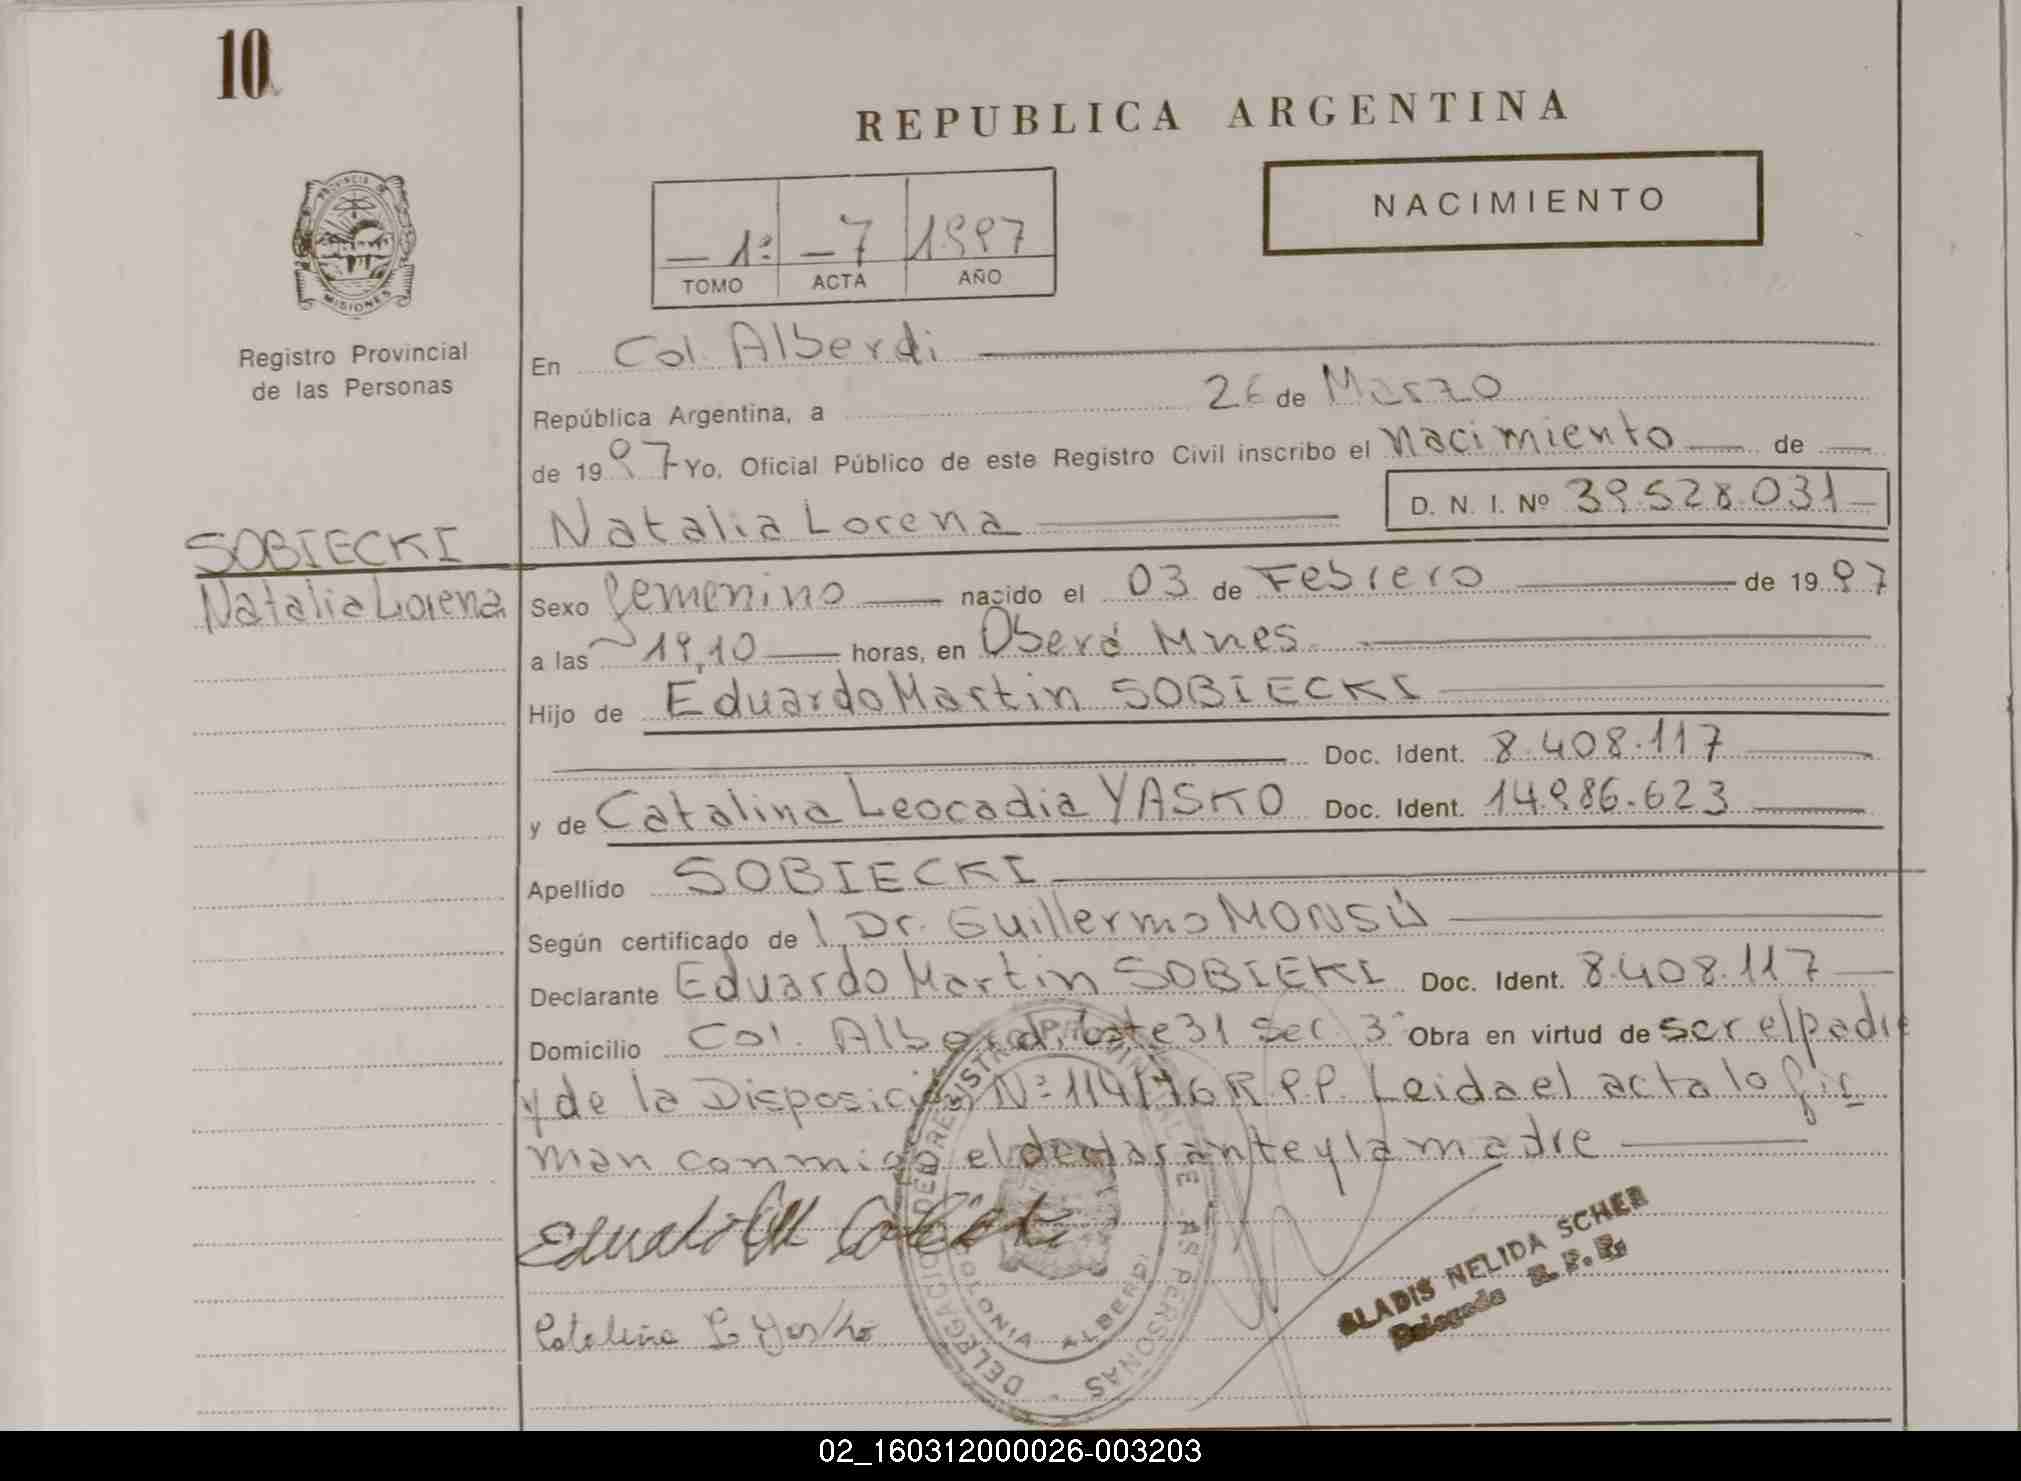 10
REPUBLICA ARGENTINA
NACIMIENTO
— 1º — 7 1997
TOMO ACTA AÑO
PROVINCIA DE
MISIONES
Registro Provincial
de las Personas
En Col. Alberdi
República Argentina, a 26 de Marzo
de 1997 Yo, Oficial Público de este Registro Civil inscribo el Nacimiento de
Natalia Lorena D. N. I. Nº 39.528.031
SOBIECKI
Natalia Lorena
Sexo femenino nacido el 03 de Febrero de 1997
a las 19,10 horas, en Oberá Mnes.
Hijo de Eduardo Martin SOBIECKI
Doc. Ident. 8.408.117
y de Catalina Leocadia YASKO Doc. Ident. 14.986.623
Apellido SOBIECKI
Según certificado de l Dr. Guillermo MONSÚ
Declarante Eduardo Martin SOBIEKI Doc. Ident. 8.408.117
Domicilio Col. Alberdi, Lote 31 Sec. 3º Obra en virtud de ser el padre
y de la Disposición Nº 114/76 R.P.P. Leida el acta lo fir
man conmigo el declarante y la madre
Catalina L. Yasko
DELEGACION DEL REGISTRO PROVINCIAL DE LAS PERSONAS
COLONIA ALBERDI
GLADIS NELIDA SCHER
Delegada R. P. P.
02_160312000026-003203